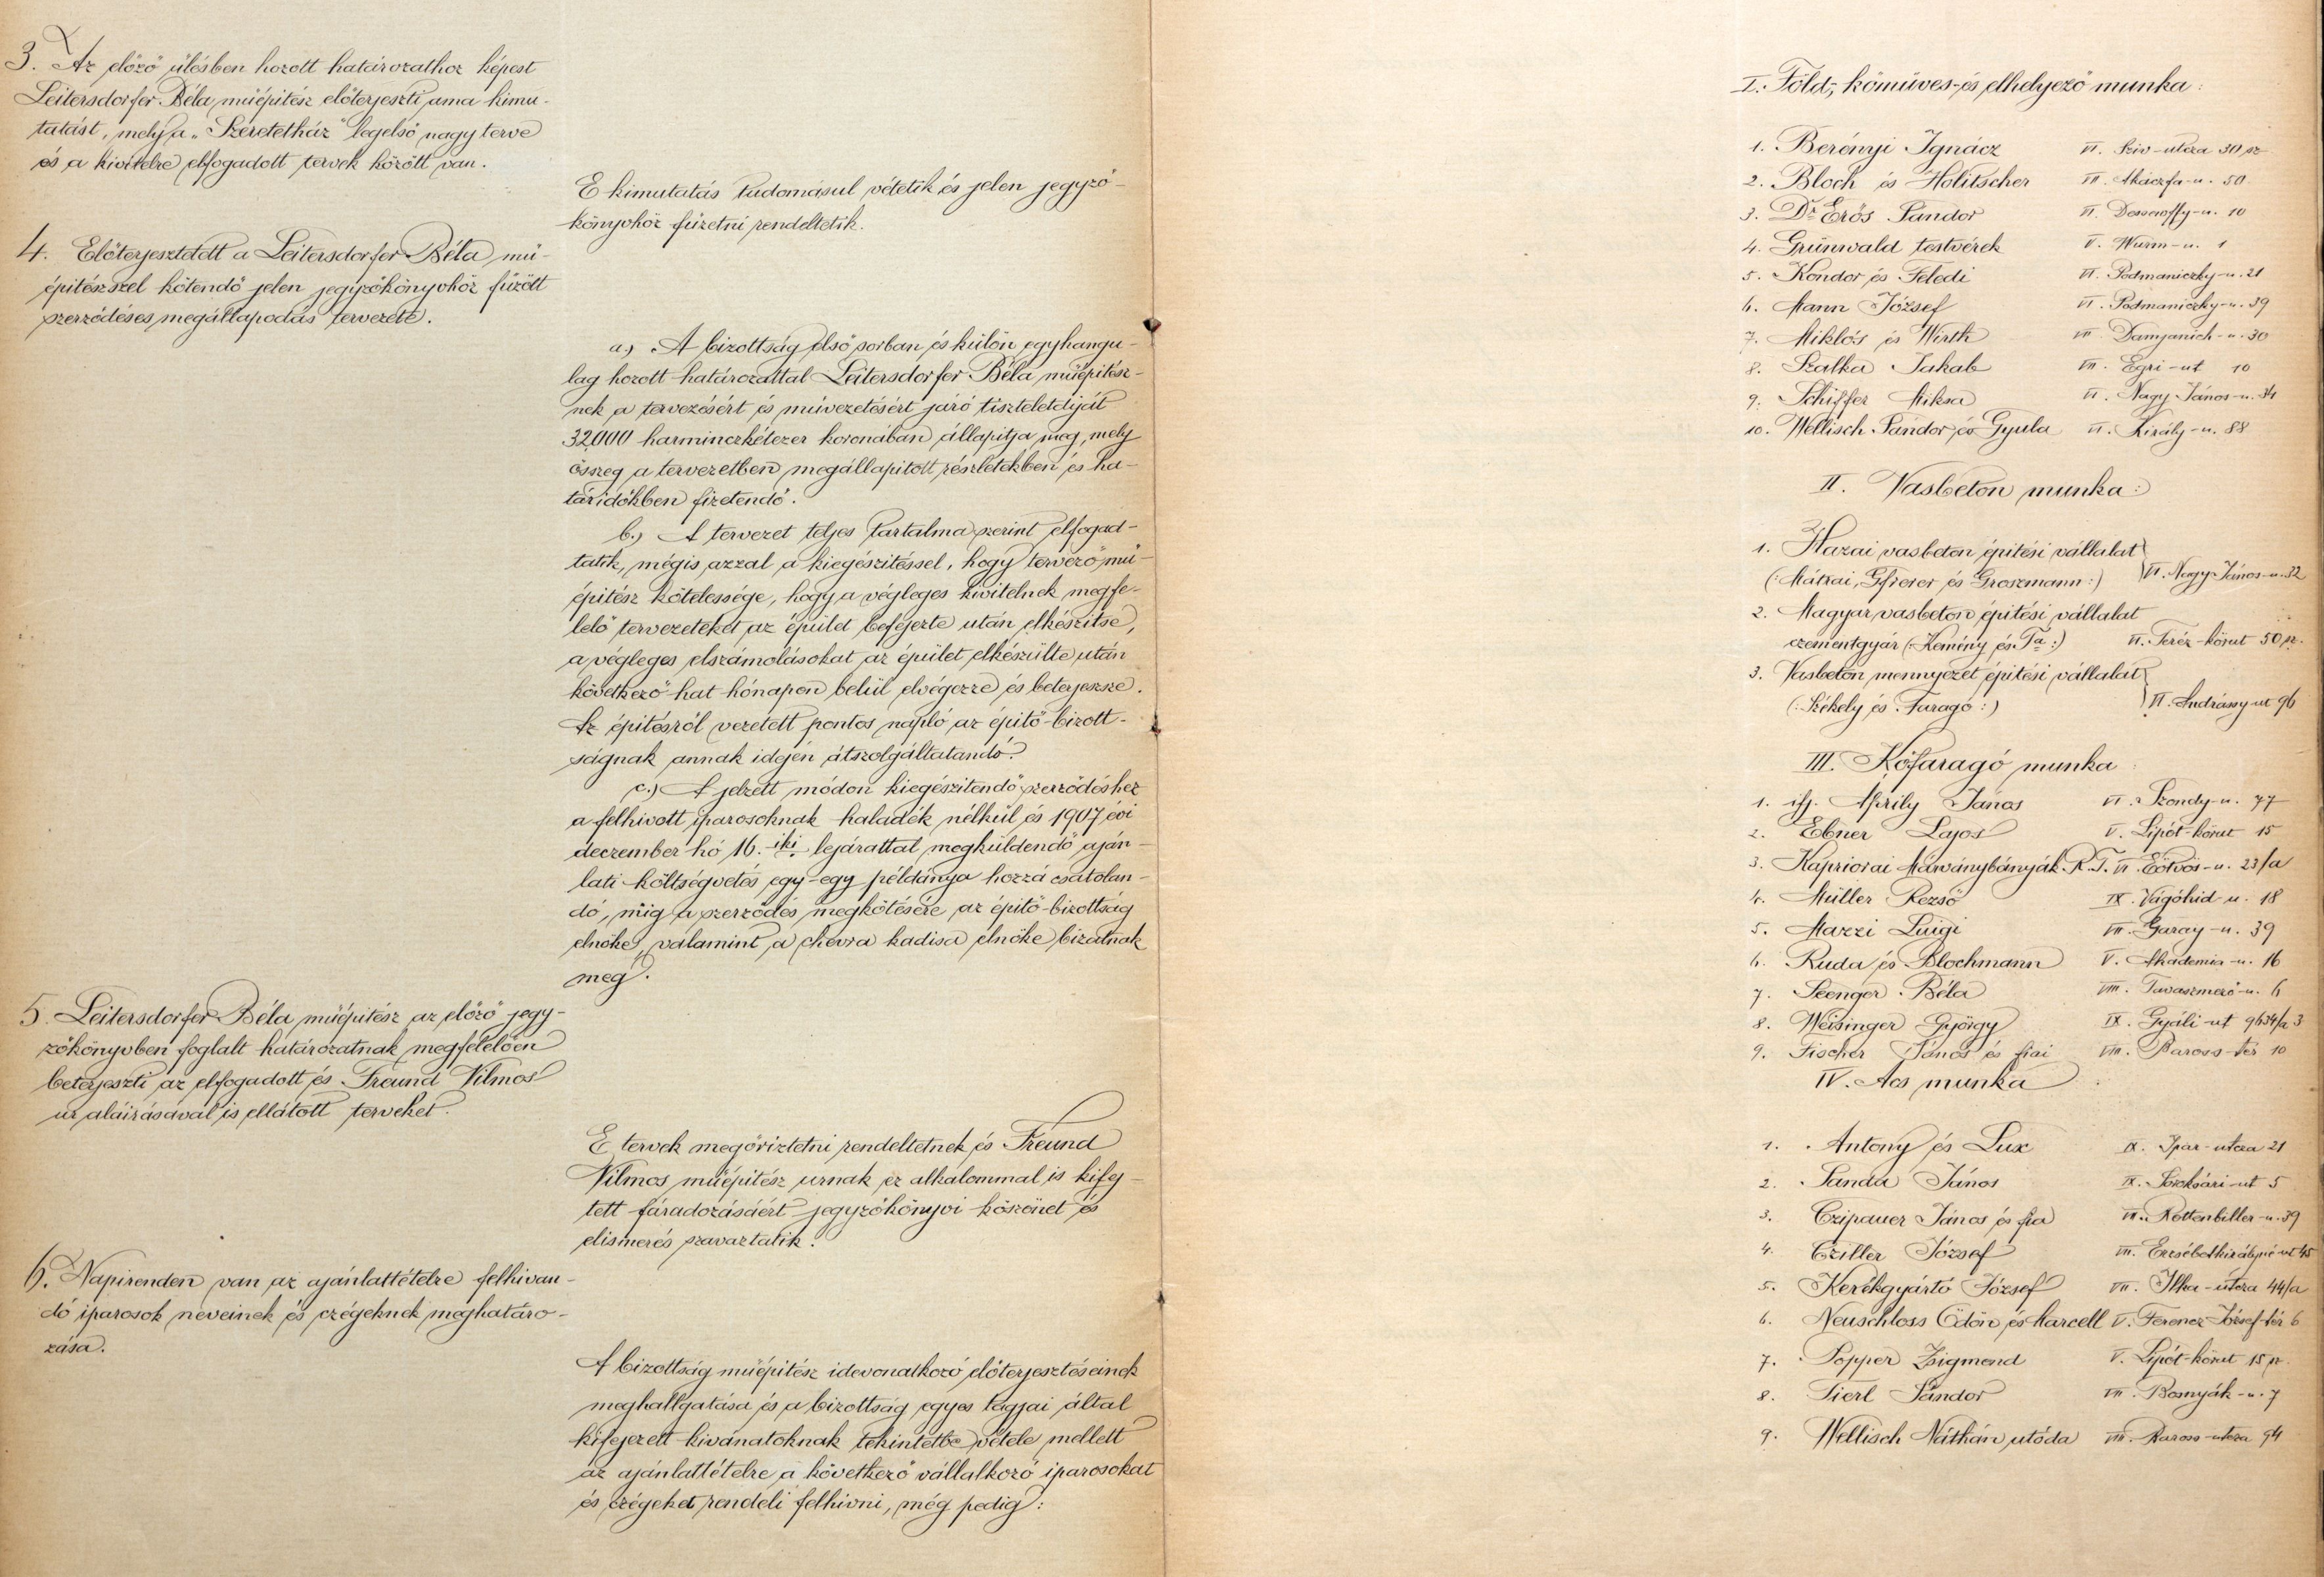 3. Az előző ülésben hozott határozathoz képest
Leitersdorfer Béla műépitész előterjeszti ama kimu-
tatást, mely a „Szeretetház" legelső nagy terve
és a kivitelre elfogadott tervek között van.
E kimutatás tudomásul vétetik és jelen jegyző-
könyvhöz füzetni rendeltetik.
4. Előterjesztetett a Leitersdorfer Béla mü-
épitészszel kötendő jelen jegyzőkönyvhöz füzött
szerződéses megállapodás tervezete.
a.) A bizottság első sorban és külön egyhangu-
lag hozott határozattal Leitersdorfer Béla müépitész-
nek a tervezésért és müvezetésért járó tiszteletdiját
32.000 harminczkétezer koronában állapitja meg, mely
összeg a tervezetben megállapitott részletekben és ha-
táridőkben fizetendő.
b.) A tervezet teljes tartalma szerint elfogad-
tatik, mégis azzal a kiegészitéssel, hogy tervező mü-
épitész kötelessége, hogy a végleges kivitelnek megfe-
lelő tervezeteket az épület befejezte után elkészitse,
a végleges elszámolásokat az épület elkészülte után
következő hat hónapon belül elvégezze és beterjeszsze.
Az épitésről vezetett pontos napló az épitő-bizott-
ságnak annak idején átszolgáltatandó.
c.) A jelzett módon kiegészitendő szerződéshez
a felhivott iparosoknak haladék nélkül és 1907 évi
deczember hó 16.-iki lejárattal megküldendő aján-
lati költségvetés egy-egy példánya hozzá csatolan-
dó, mig a szerződés megkötésére az épitő-bizottság
elnöke, valamint a chevra kadisa elnöke bizatnak
meg.
5. Leitersdorfer Béla müépitész az előző jegy-
zőkönyvben foglalt határozatnak megfelelően
beterjeszti az elfogadott és Freund Vilmos
ur aláirásával is ellátott terveket.
E tervek megőriztetni rendeltetnek és Freund
Vilmos müépitész urnak ez alkalommal is kifej-
tett fáradozásáért jegyzőkönyvi köszönet és
elismerés szavaztatik.
6. Napirenden van az ajánlattételre felhivan-
dó iparosok neveinek és czégeknek meghatáro-
zása.
A bizottság müépitész idevonatkozó előterjesztéseinek
meghallgatása és a bizottság egyes tagjai által
kifejezett kivánatoknak tekintetbe vétele mellett
az ajánlattételre a következő vállalkozó iparosokat
és czégeket rendeli felhivni, még pedig:
I. Föld-, kőmüves- és elhelyező munka:
1. Berényi Ignácz VI. Sziv-utcza 30 sz
2. Bloch és Holitscher VII. Akáczfa-u. 50.
3. Dr Erős Sándor VI. Dessewffy-u. 10
4. Grünwald testvérek V. Wurm-u. 1
5. Kondor és Feledi VI. Podmaniczky-u. 21
6. Mann József VI. Podmaniczky-u. 39
7. Miklós és Wirth VII. Damjanich-u. 30
8. Szalka Jakab VII. Egri-ut 10
9. Schiffer Miksa VI. Nagy János-u. 34
10. Wellisch Sándor és Gyula VI. Király-u. 88
II. Vasbeton munka:
1. Hazai vasbeton épitési vállalat
(: Mátrai, Gfrerer és Groszmann :) VI. Nagy János-u. 32
2. Magyar vasbeton épitési vállalat
czementgyár (: Kemény és Ta :) VI. Teréz-körut 50 sz.
3. Vasbeton mennyezet épitési vállalat
(: Székely és Faragó :) VI. Andrássy-ut 96
III. Kőfaragó munka
1. ifj. Aprily János VI. Szondy-u. 77
2. Ebner Lajos V. Lipót-körut 15
3. Kapriorai Márványbányák R.T. VI. Eötvös-u. 23/a
4. Müller Rezső IX. Vágóhid-u. 18
5. Mazzi Luigi VII. Garay-u. 39
6. Ruda és Blochmann V. Akademia-u. 16
7. Seenger Béla VIII. Tavaszmező-u. 6
8. Weisinger György IX. Gyáli-ut 9634/a 3
9. Fischer János és fiai VIII. Baross-tér 10
IV. Ács munka
1. Antony és Lux IX. Ipar-utcza 21
2. Banda János IX. Soroksári-ut 5
3. Czipauer János és fia VII. Rottenbiller-u. 39
4. Cziller József VII. Erzsébetkirályné ut 45
5. Kerékgyártó József VII. Ilka-utcza 44/a
6. Neuschloss Ödön és Marcell V. Ferencz József-tér 6
7. Popper Zsigmond V. Lipót-körut 15 sz.
8. Tierl Sándor VII. Bosnyák-u. 7
9. Wellisch Náthán utóda VIII. Baross-utcza 94